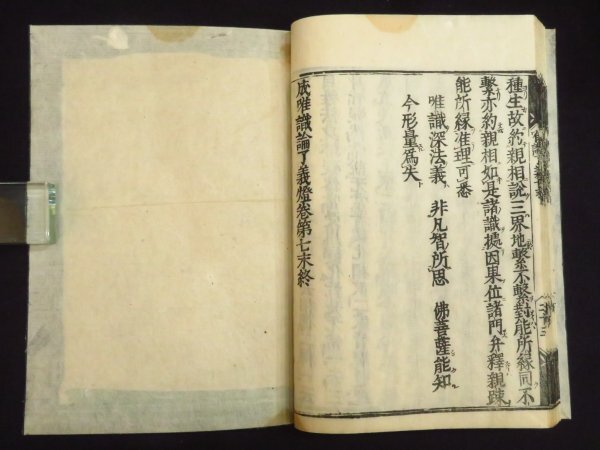 種生故約親相說三界地繫不繫對能所緣同不
繫亦約親相如是諸識據因果位諸門分釋親踈
能所緣准理可悉
唯識深法義　非凡智所思　佛菩薩能知
今形量爲失
成唯識論了義燈卷第七末終